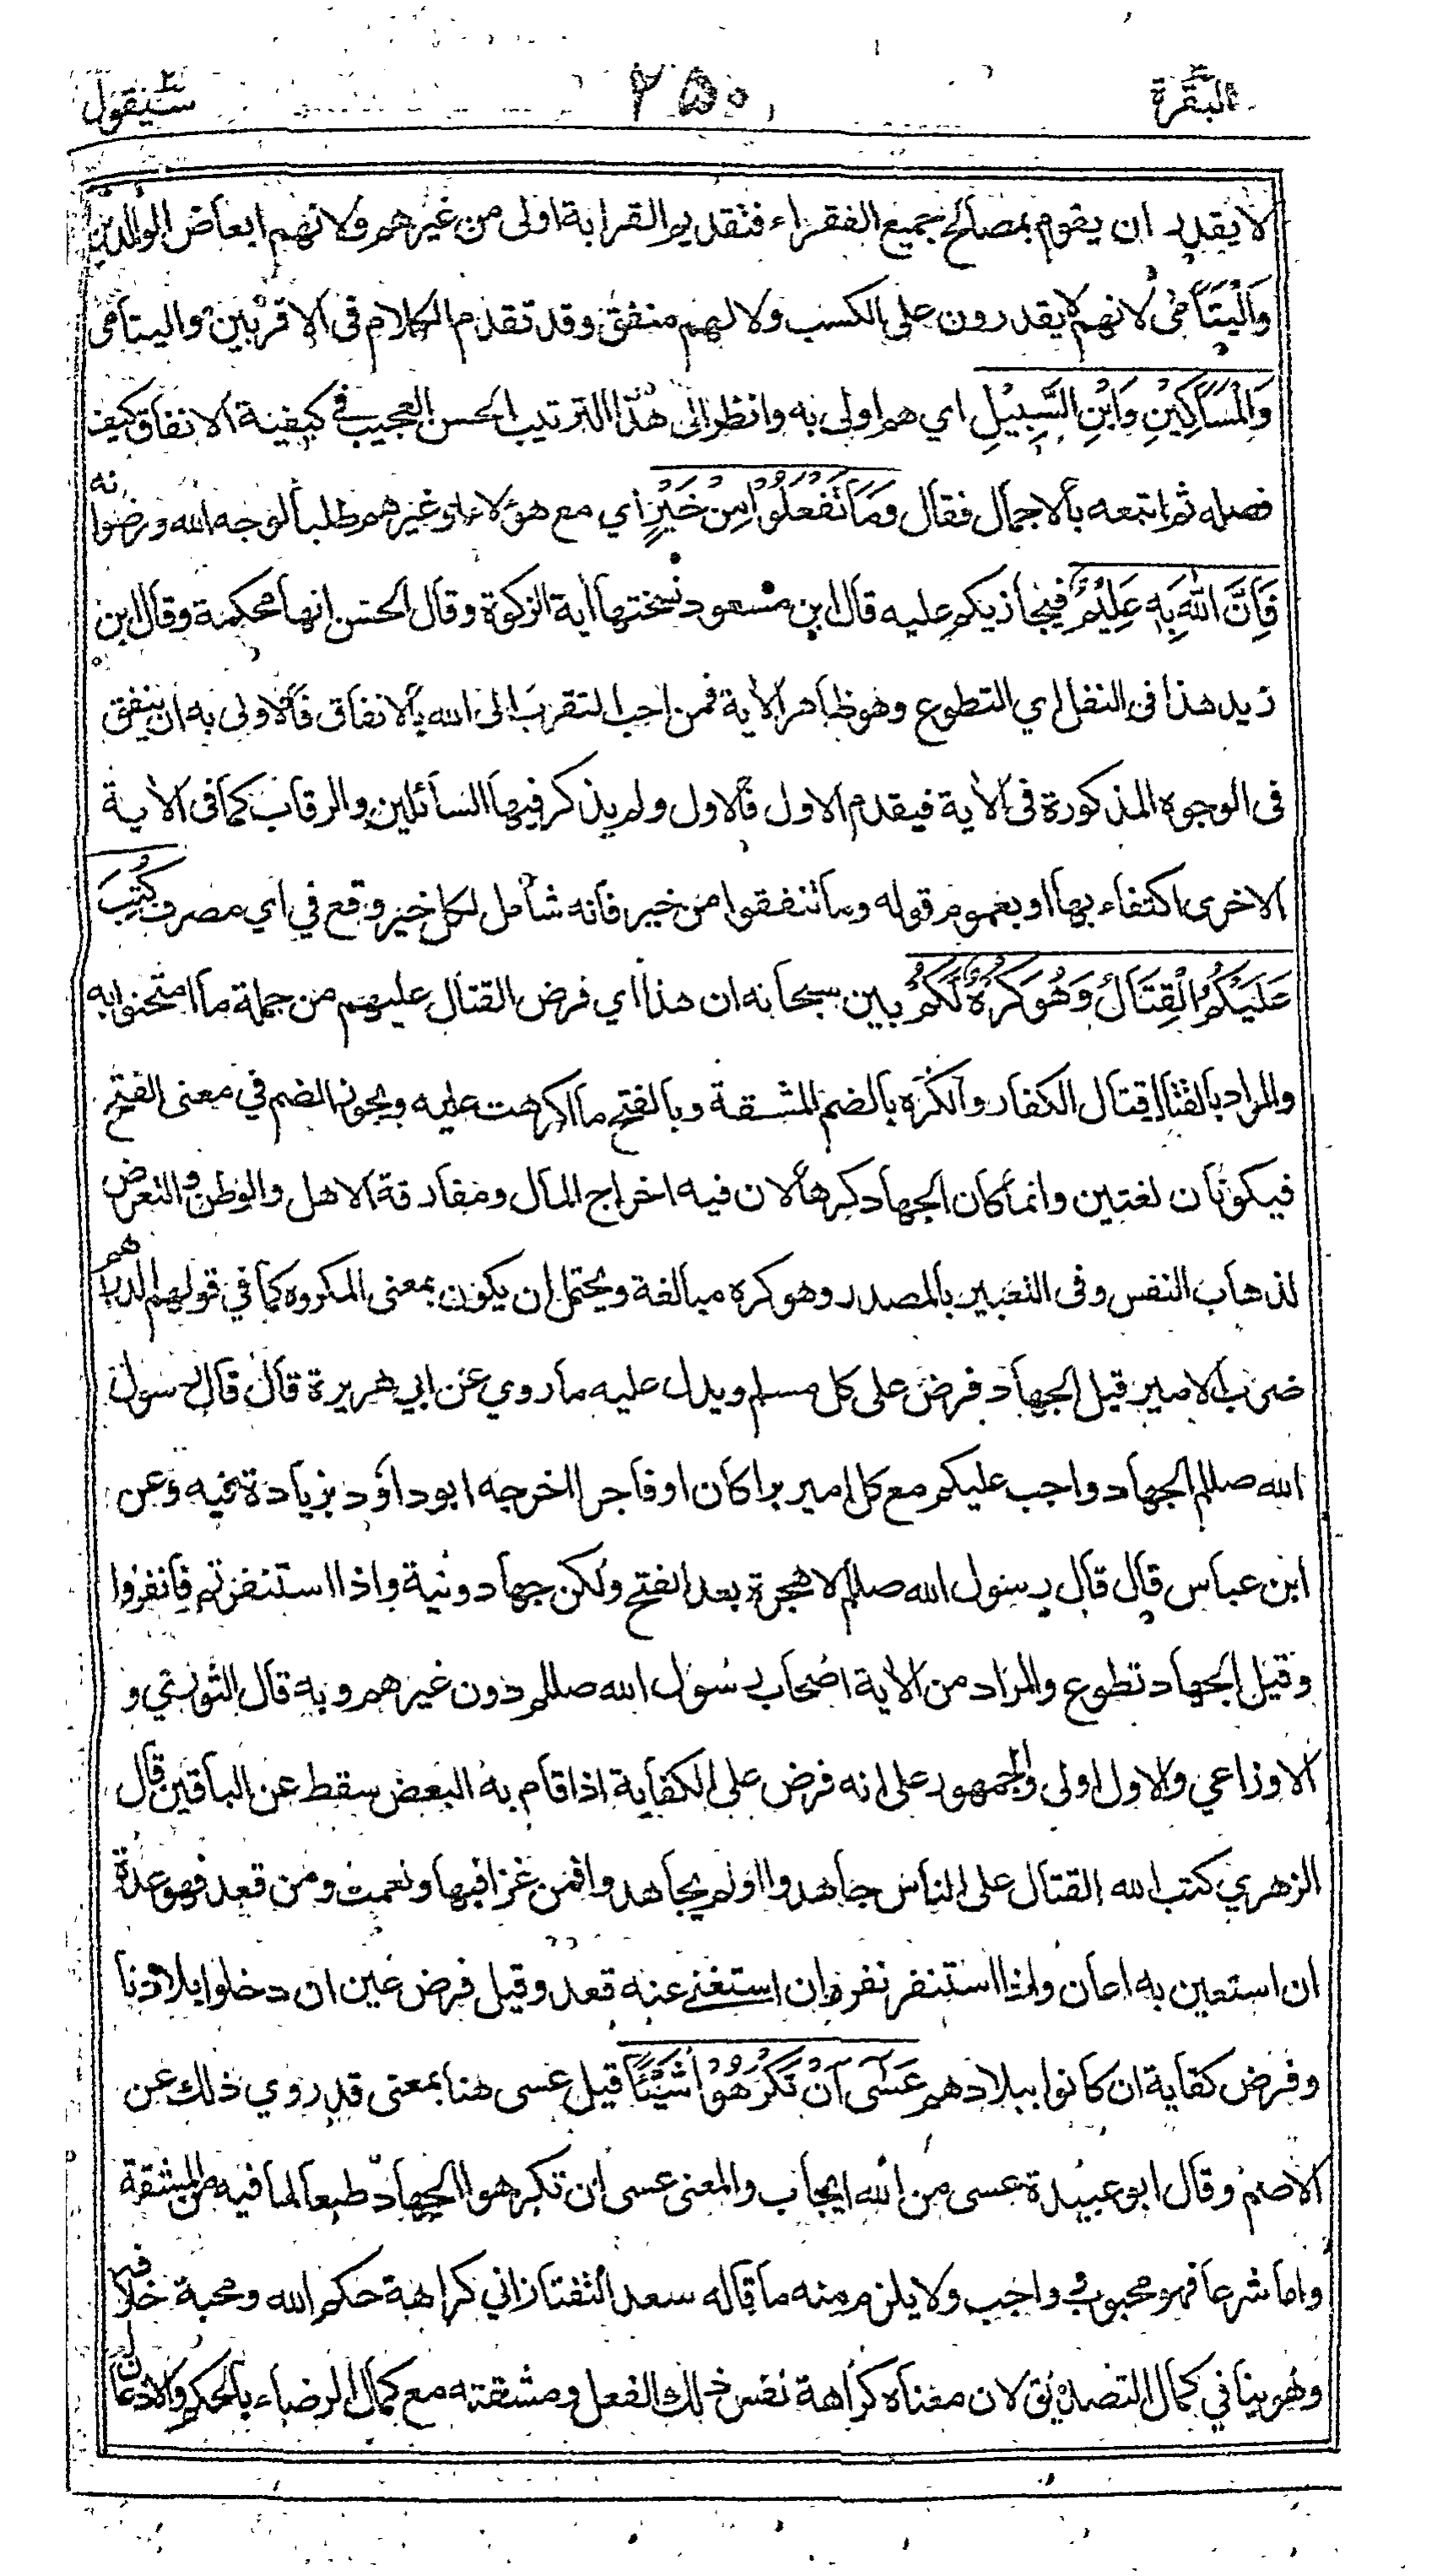 البقرة ٢٥٠ سيقول
لا يقدر ان يقوم بمصالح جميع الفقراء فتقديم القرابة اولى من غيرهم ولانهم ابعاض الوالدين
وَالْيَتَامٰى لانهم لا يقدرون على الكسب ولا لهم منفق وقد تقدم الكلام فى الاقربين واليتامى
وَالْمَسَاكِيْنِ وَابْنِ السَّبِيْلِ اي هم اولى به وانظر الى هذا الترتيب الحسن العجيب في كيفية الانفاق كيف
فصله ثم اتبعه بالاجمال فقال وَمَا تَفْعَلُوْا مِنْ خَيْرٍ اي مع هؤلاء او غيرهم طلبا لوجه الله ورضوانه
فَاِنَّ اللّٰهَ بِهٖ عَلِيْمٌ فيجازيكم عليه قال ابن مسعود نسختها اية الزكوة وقال الحسن انها محكمة وقال ابن
زيد هذا فى النفل اي التطوع وهو ظاهر الاية فمن احب التقرب الى الله بالانفاق فالاولى به ان ينفق
فى الوجوه المذكورة فى الاية فيقدم الاول فالاول ولم يذكر فيها السائلين والرقاب كما فى الاية
الاخرى اكتفاء بها او بعموم قوله وما تنفقوا من خير فانه شامل لكل خير وقع في اي مصرف كُتِبَ
عَلَيْكُمُ الْقِتَالُ وَهُوَ كُرْهٌ لَّكُمْ بين سبحانه ان هذا اي فرض القتال عليهم من جملة ما امتحنوا به
والمراد بالقتال قتال الكفار والكره بالضم المشقة وبالفتح ما اكرهت عليه ويجوز الضم في معنى الفتح
فيكونان لغتين وانما كان الجهاد كرها لان فيه اخراج المال ومفارقة الاهل والوطن والتعرض
لذهاب النفس وفى التعبير بالمصدر وهو كره مبالغة ويحتمل ان يكون بمعنى المكروه كما في قولهم الدراهم
ضرب الامير قيل الجهاد فرض على كل مسلم ويدل عليه ما روي عن ابي هريرة قال قال رسول
الله صللم الجهاد واجب عليكم مع كل امير برا كان او فاجرا اخرجه ابو داؤد بزيادة فيه وعن
ابن عباس قال قال رسول الله صللم لا هجرة بعد الفتح ولكن جهاد ونية واذا استنفرتم فانفروا
وقيل الجهاد تطوع والمراد من الاية اصحاب رسول الله صللم دون غيرهم وبه قال الثوري و
الاوزاعي والاول اولى والجمهور على انه فرض على الكفاية اذا قام به البعض سقط عن الباقين قال
الزهري كتب الله القتال على الناس جاهدوا او لم يجاهدوا فمن غزا فبها ونعمت ومن قعد فهو عدة
ان استعين به اعان واذا استنفر نفر وان استغني عنه قعد وقيل فرض عين ان دخلوا بلادنا
وفرض كفاية ان كانوا ببلادهم عَسٰٓى اَنْ تَكْرَهُوْا شَيْئًا قيل عسى هنا بمعنى قد روي ذلك عن
الاصم وقال ابو عبيدة عسى من الله ايجاب والمعنى عسى ان تكرهوا الجهاد طبعا لما فيه من المشقة
واما شرعا فهو محبوب واجب ولا يلزم منه ما قاله سعد التفتازاني كراهة حكم الله ومحبة خلافه
وهو ينافي كمال التصديق لان معناه كراهة نفس ذلك الفعل ومشقته مع كمال الرضاء بالحكم والاذعان